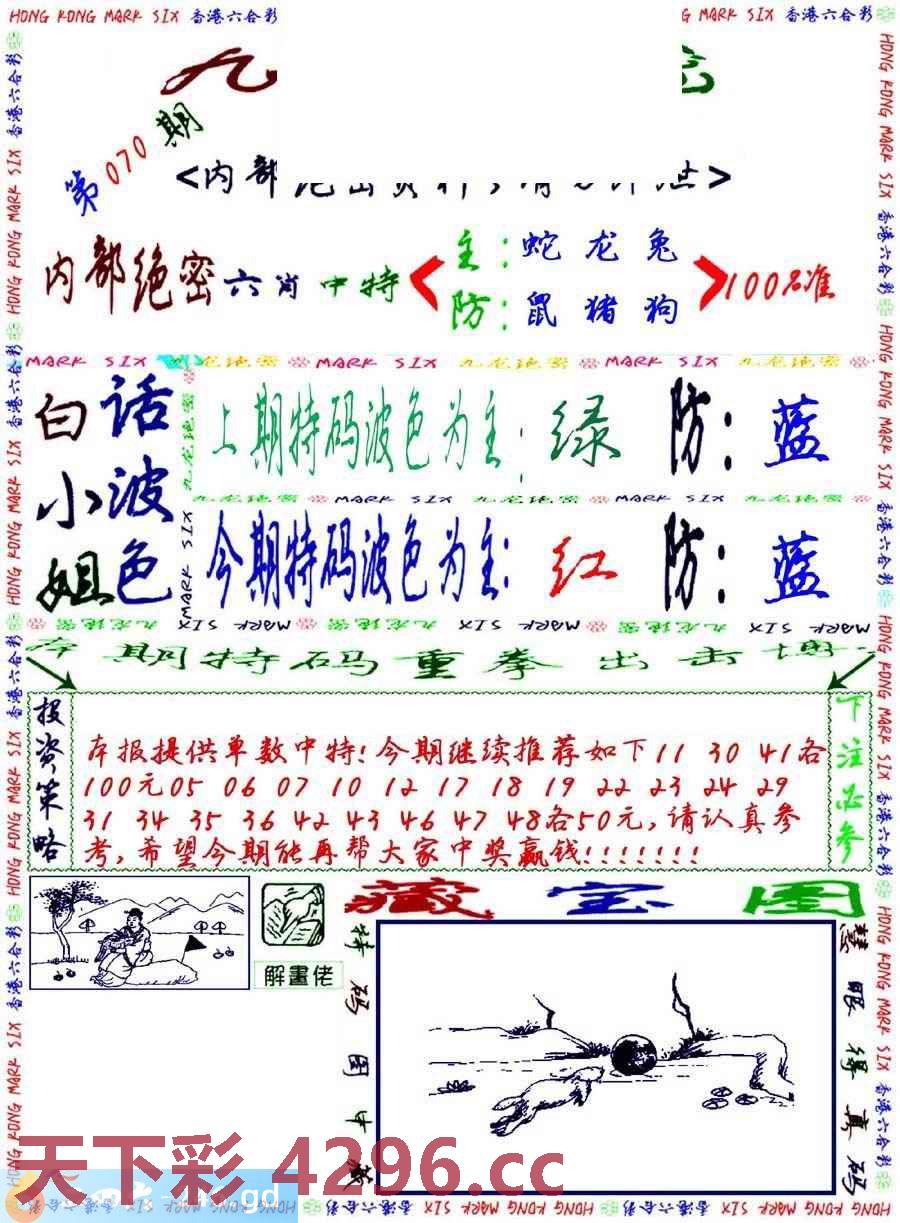 HONG KONG MARK SIX 香港六合彩
G MARK SIX 香港六合彩
九
第070期
<内部
>
内部绝密六肖中特
主:蛇龙兔
防:鼠猪狗
100%准
MARK SIX 九龙绝密 MARK SIX 九龙绝密 MARK SIX 九龙绝密
白小姐
话波色
上期特码波色为主:绿 防:蓝
九龙绝密 MARK SIX 九龙绝密 MARK SIX 九龙绝密
今期特码波色为主:红 防:蓝
九龙绝密 MARK SIX 九龙绝密 MARK SIX 九龙绝密 MARK SIX
期特码重拳出击
投资策略
本报提供单数中特!今期继续推荐如下11 30 41各
100元05 06 07 10 12 17 18 19 22 23 24 29
31 34 35 36 42 43 46 47 48各50元,请认真参
考,希望今期能再帮大家中奖赢钱!!!!!!!
下注必参
解畫佬
藏宝图
特码图中藏
慧眼得真码
天下彩 4296.cc
gd